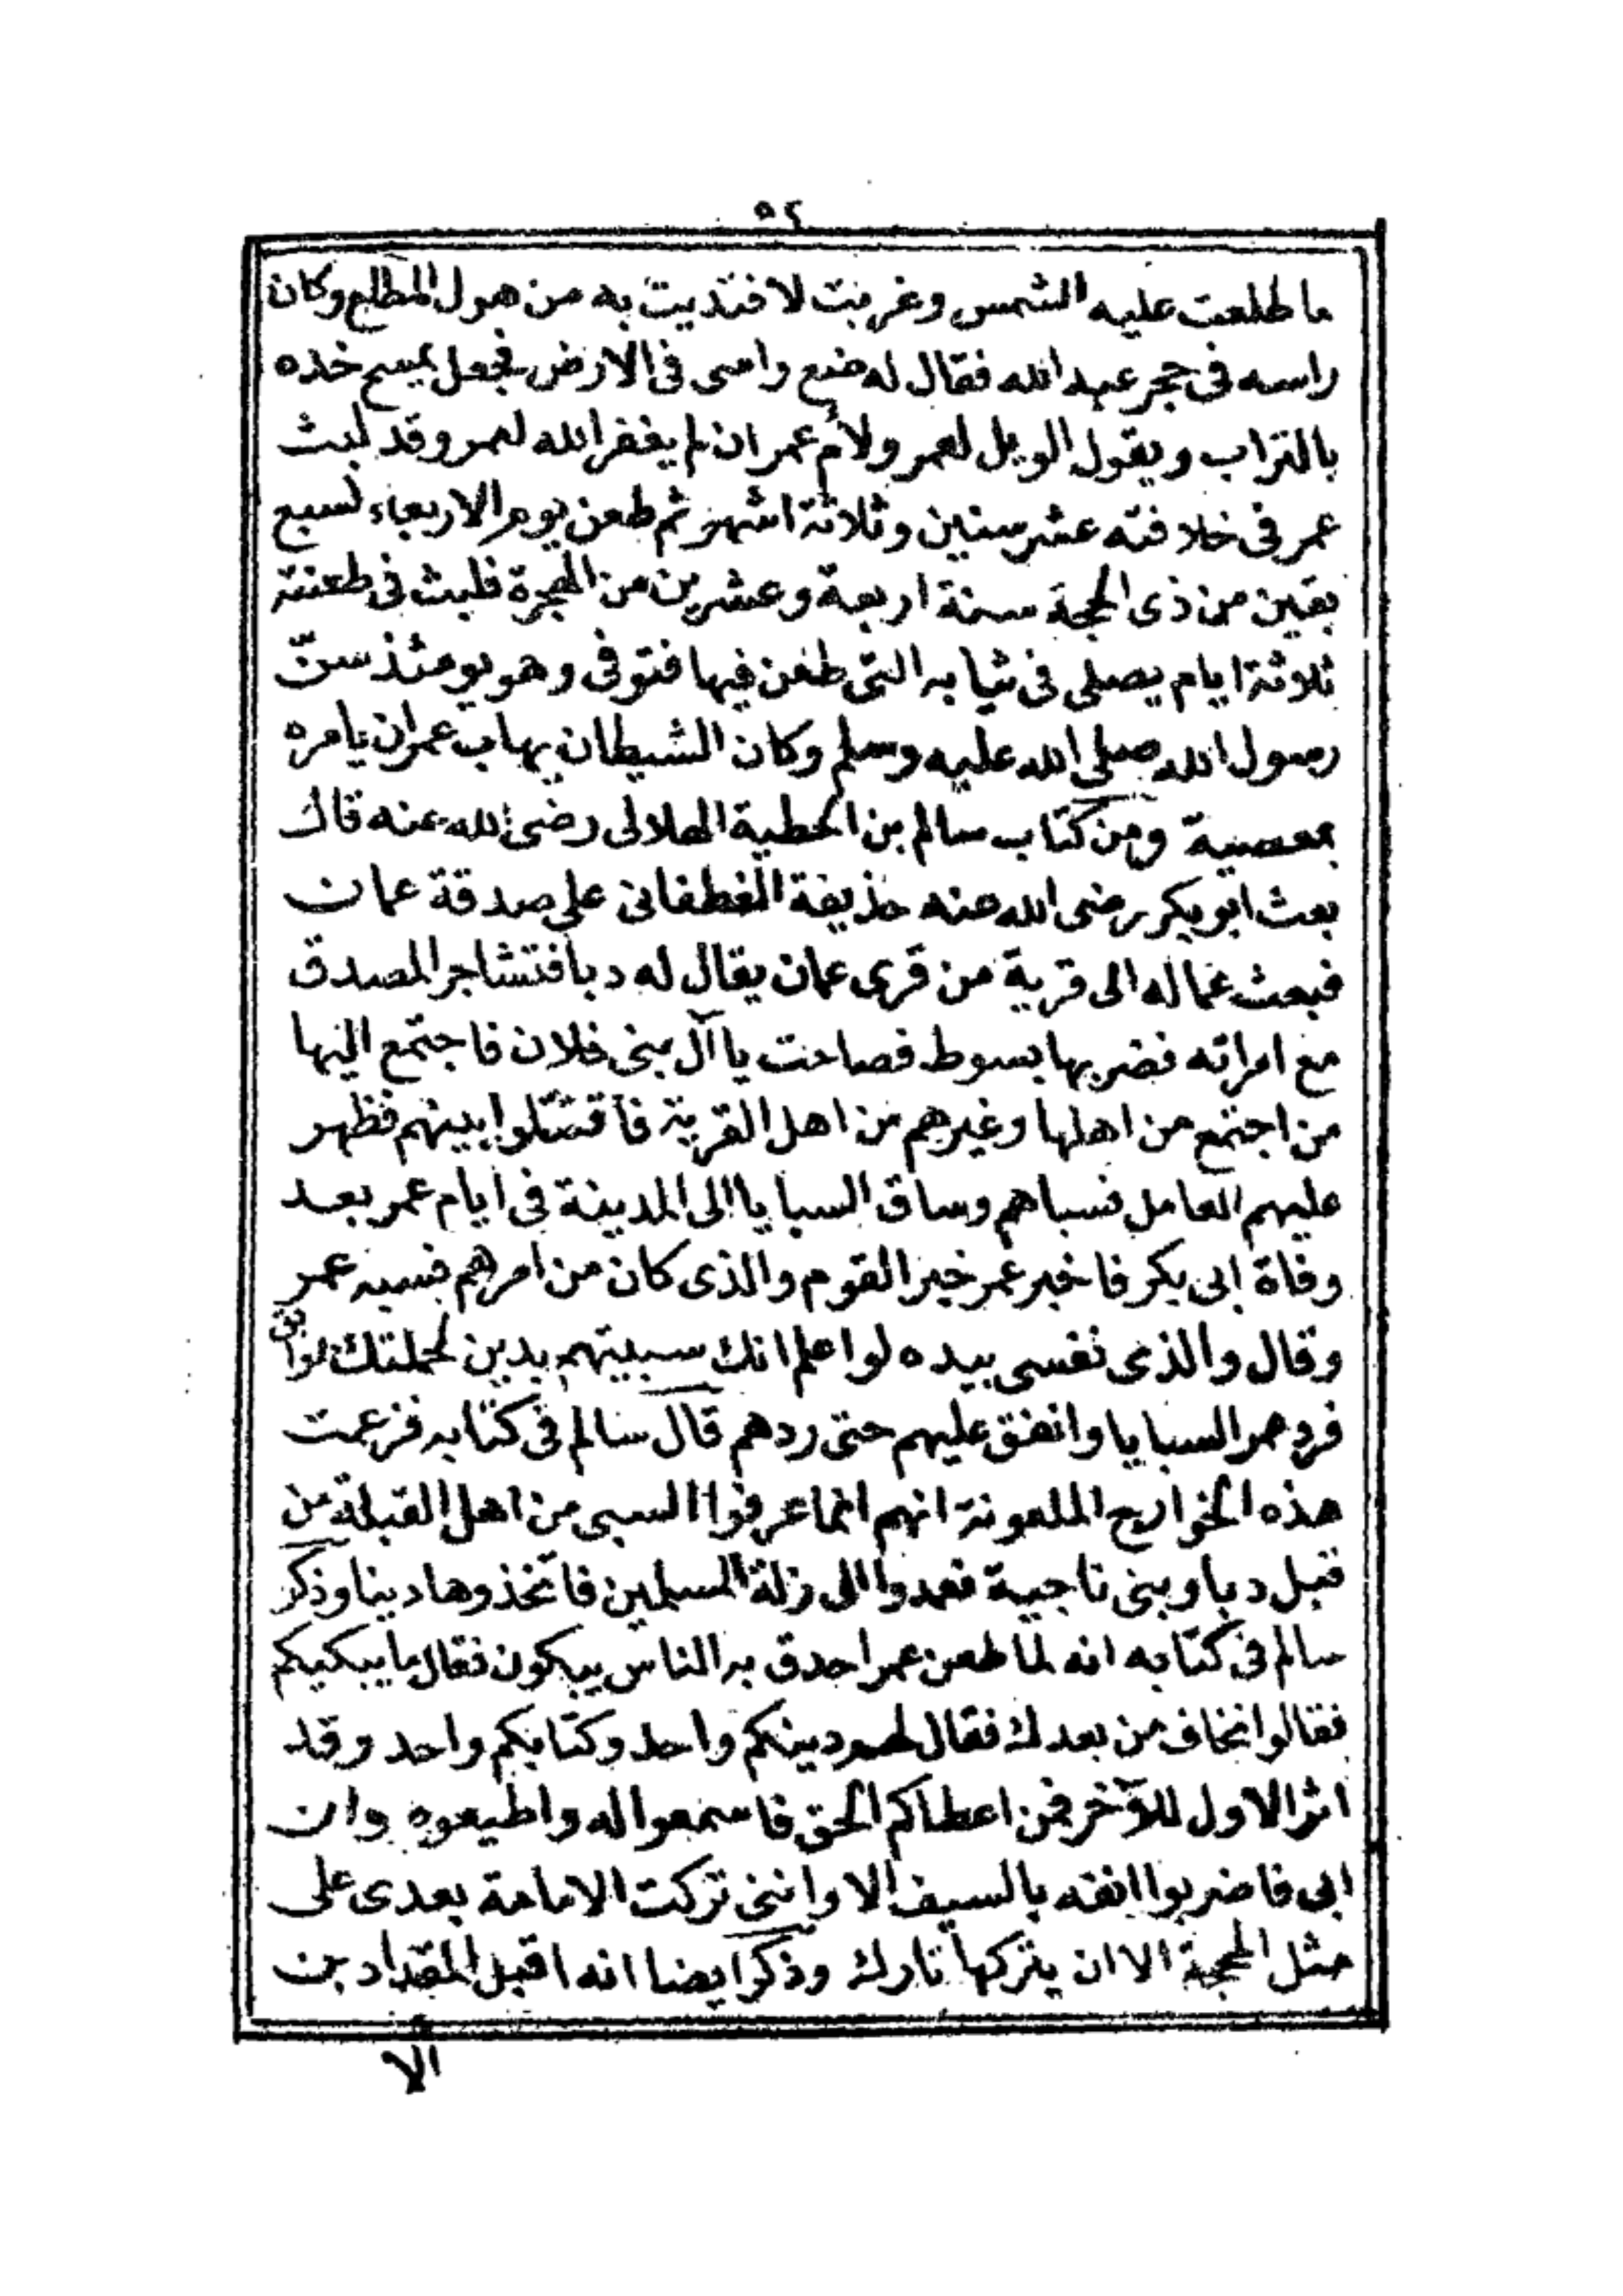 ٥٢
ما طلعت عليه الشمس وغربت لافتديت به من هول المطلع وكان
راسه فى حجر عبد الله فقال له ضع راسى فى الارض فجعل يمسح خده
بالتراب ويقول الويل لعمر ولأم عمر ان لم يغفر الله لعمر وقد لبث
عمر فى خلافته عشر سنين وثلاثة اشهر ثم طعن يوم الاربعاء لسبع
بقين من ذى الحجة سنة اربعة وعشرين من الهجرة فلبث فى طعنته
ثلاثة ايام يصلى فى ثيابه التى طعن فيها فتوفى وهو يومئذ سنّ
رسول الله صلى الله عليه وسلم وكان الشيطان يهاب عمر ان يامره
بمعصية ومن كتاب سالم بن الحطية الهلالى رضى الله عنه قال
بعث ابو بكر رضى الله عنه حذيفة الغطفانى على صدقة عمان
فبعث عماله الى قرية من قرى عمان يقال له دبا فتشاجر المصدق
مع امراته فضربها بسوط فصاحت يا آل بنى خلان فاجتمع اليها
من اجتمع من اهلها وغيرهم من اهل القرية فاقتتلوا بينهم فظهر
عليهم العامل فسباهم وساق السبايا الى المدينة فى ايام عمر بعد
وفاة ابى بكر فاخبر عمر خبر القوم والذى كان من امرهم فسبه عمر
وقال والذى نفسى بيده لو اعلم انك سبيتهم بدين لحملتك
فردهم السبايا وانفق عليهم حتى ردهم قال سالم فى كتابه فزعمت
هذه الخوارج الملعونة انهم انما عرفوا السبى من اهل القبلة من
قبل دبا وبنى ناجية فعمدوا الى زلة المسلمين فاتخذوها دينا وذكر
سالم فى كتابه انه لما طعن عمر احدق به الناس يبكون فقال ما يبكيكم
فقالوا نخاف من بعدك فقال لهم دينكم واحد وكتابكم واحد وقد
اثر الاول للآخر فمن اعطاكم الحق فاسمعوا له واطيعوه وان
ابى فاضربوا انفه بالسيف الا واننى تركت الامامة بعدى على
مثل المحجة الا ان يتركها تارك وذكر ايضا انه اقبل المقداد بن
الا